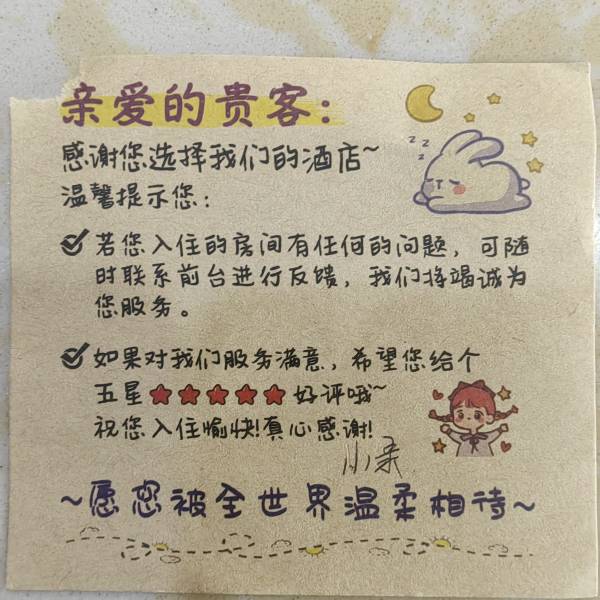 亲爱的贵客：
感谢您选择我们的酒店~
温馨提示您：
若您入住的房间有任何的问题，可随
时联系前台进行反馈，我们将竭诚为
您服务。
如果对我们服务满意，希望您给个
五星★★★★★好评哦~
祝您入住愉快!真心感谢!
小柔
~愿您被全世界温柔相待~
zzz
zz